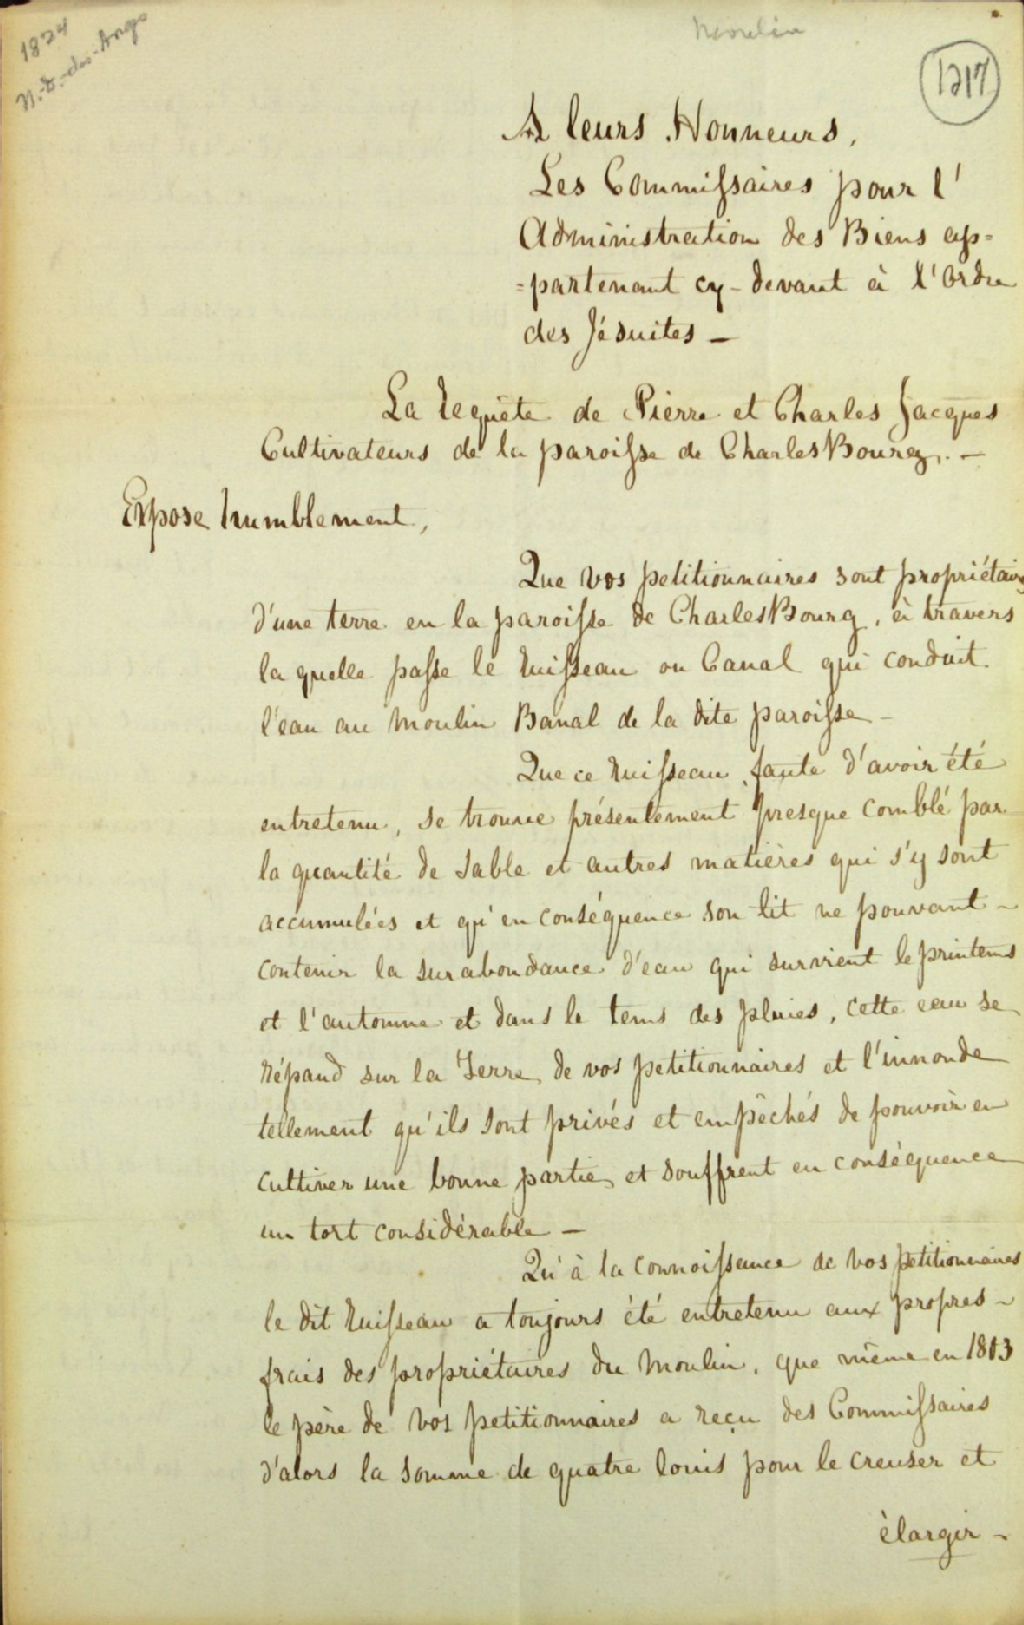 1824
N.-D.-des-Anges
Moulin
1217
A leurs Honneurs,
Les Commissaires pour l'
Administration des Biens ap=
=partenant cy-devant à l'ordre
des Jésuites —
La requête de Pierre et Charles Jacques
Cultivateurs de la paroisse de CharlesBourg. —
Expose humblement,
Que vos petitionnaires sont propriétaires
d'une terre en la paroisse de CharlesBourg, à travers
la quelle passe le ruisseau ou Canal qui conduit
l'eau au moulin Banal de la dite paroisse —
Que ce ruisseau, faute d'avoir été
entretenu, se trouve présentement presque comblé par
la quantité de sable et autres matières qui s'y sont
accumulées et qu'en conséquence son lit ne pouvant —
contenir la surabondance d'eau qui survient le printems
et l'automne et dans le tems des pluies, cette eau se
répand sur la Terre de vos petitionnaires et l'innonde
tellement qu'ils sont privés et empêchés de pouvoir en
cultiver une bonne partie et souffrent en conséquence
un tort considérable —
Qu'à la connoissance de vos petitionnaires
le dit ruisseau a toujours été entretenu aux propres —
frais des propriétaires du moulin, que même en 1813
le père de vos petitionnaires a reçu des Commissaires
d'alors la somme de quatre louis pour le creuser et
élargir —